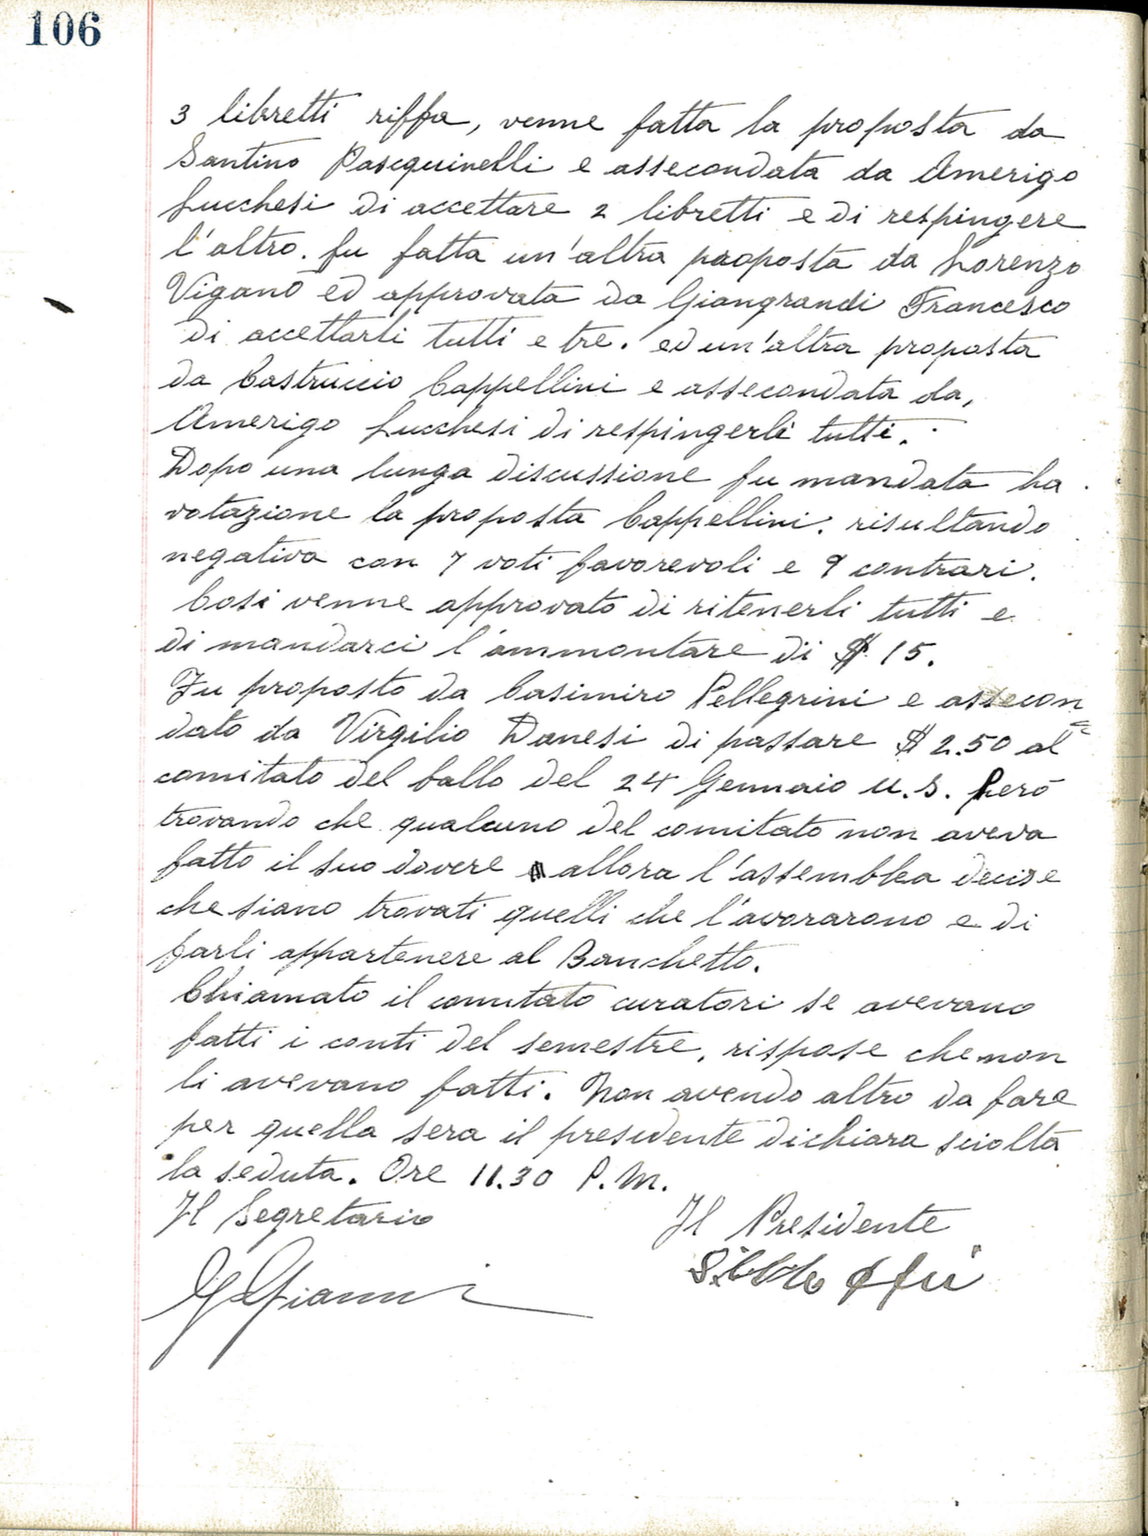 106
3 libretti riffa, venne fatta la proposta da
Santino Pasequinelli e assecondata da Amerigo
Lucchesi di accettare 2 libretti e di respingere
l'altro. fu fatta un'altra paoposta da Lorenzo
Viganò ed approvata da Giangrandi Francesco
di accettarli tutti e tre. ed un'altra proposta
da Castruccio Cappellini e assecondata da,
Amerigo Lucchesi di respingerli tutti.
Dopo una lunga discussione fu mandata ha
votazione la proposta Cappellini. risultando
negativa con 7 voti favorevoli e 9 contrari.
Cosi venne approvato di ritenerli tutti e
di mandarci l'ammontare di $ 15.
Fu proposto da Casimiro Pellegrini e assecon=
dato da Virgilio Danesi di passare $ 2.50 al
comitato del ballo del 24 Gennaio u.s. però
trovando che qualcuno del comitato non aveva
fatto il suo dovere allora l'assemblea decise
che siano trovati quelli che l'avorarono e di
farli appartenere al Banchetto.
Chiamato il comitato curatori se avevano
fatti i conti del semestre, rispose che non
li avevano fatti. Non avendo altro da fare
per quella sera il presidente dichiara sciolta
la seduta. Ore 11.30 P.M.
Il Segretario Il Presidente
G Gianni